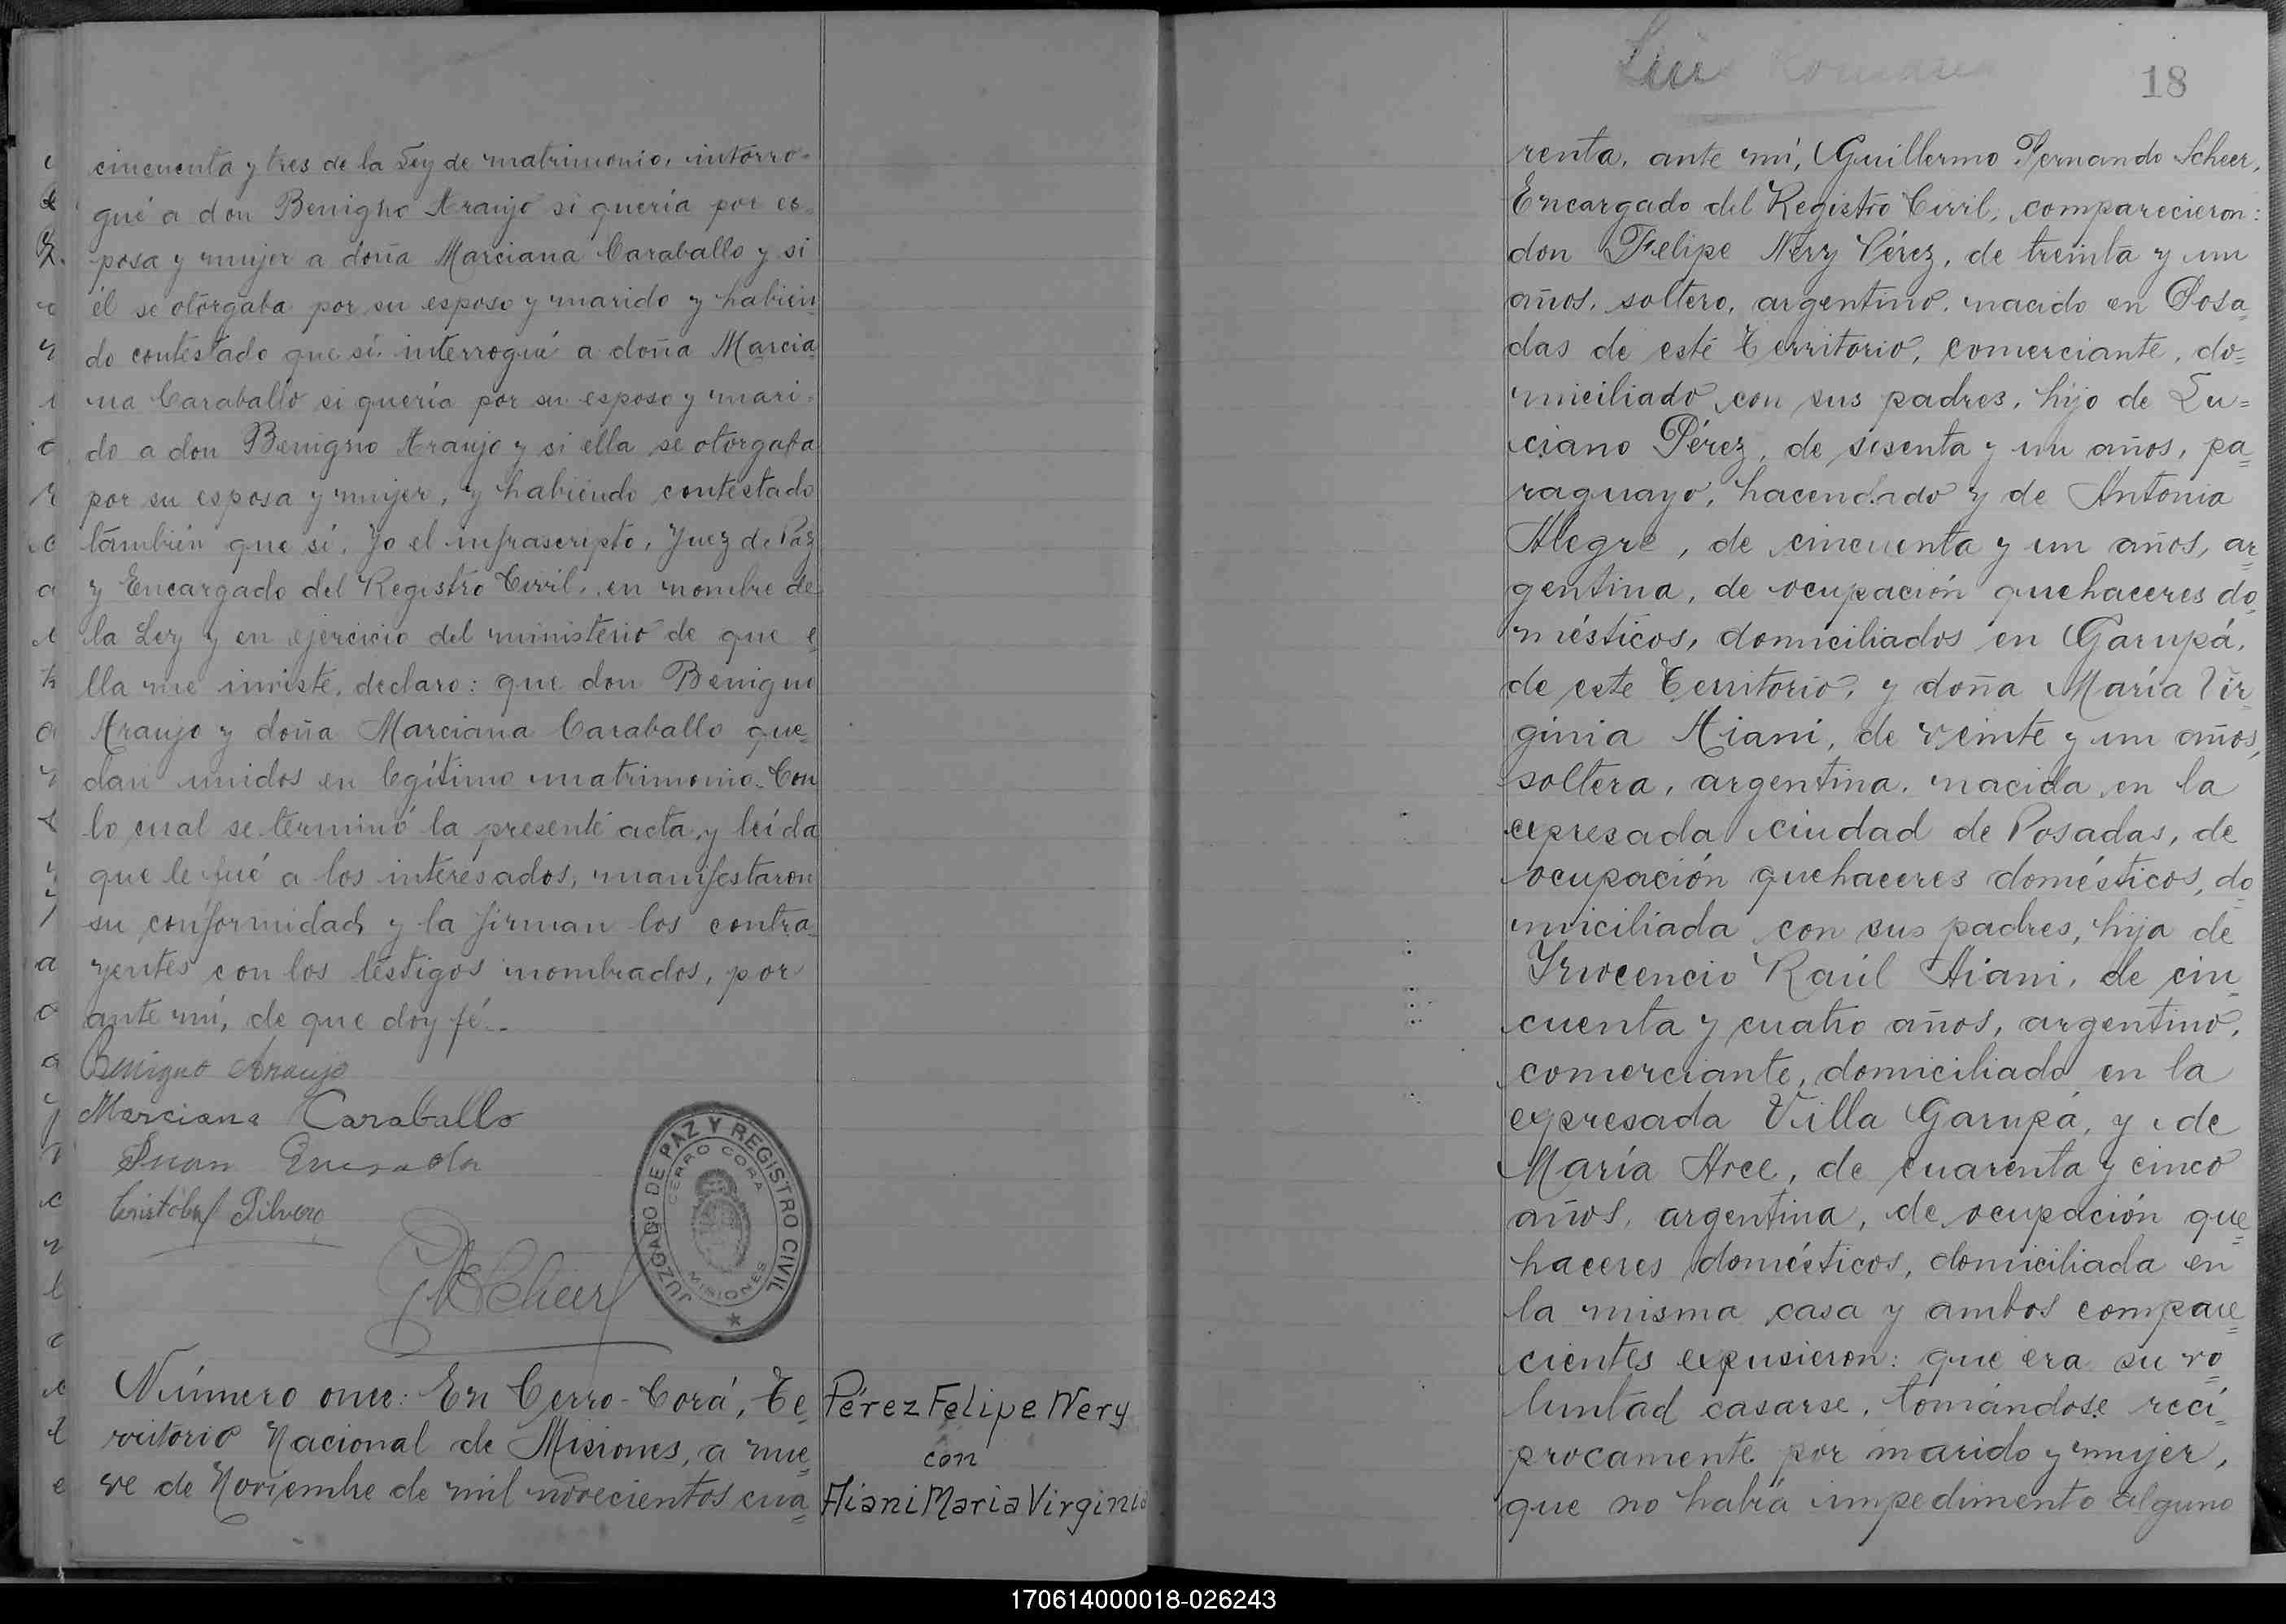 cincuenta y tres de la Ley de matrimonio, interro-
gué a don Benigno Araujo si quería por es-
posa y mujer a doña Marciana Caraballo y si
él se otorgaba por su esposo y marido y habien-
do contestado que sí, interrogué a doña Marcia-
na Caraballo si quería por su esposo y mari-
do a don Benigno Araujo y si ella se otorgaba
por su esposa y mujer, y habiendo contestado
también que sí, Yo el infrascripto, Juez de Paz
y Encargado del Registro Civil, en nombre de
la Ley y en ejercicio del ministerio de que e-
lla me inviste, declaro: que don Benigno
Araujo y doña Marciana Caraballo que-
dan unidos en legítimo matrimonio. Con
lo cual se terminó la presente acta, y leída
que le fué a los interesados, manifestaron
su conformidad y la firman los contra-
yentes con los testigos nombrados, por
ante mí, de que doy fé.-
Benigno Araujo
Marciana Caraballo
Juan Quesada
Cristóbal
Scheer
JUZGADO DE PAZ Y REGISTRO CIVIL
CERRO CORA
MISIONES
Número once: En Cerro-Corá, Te-
rritorio Nacional de Misiones, a nue-
ve de Noviembre de mil novecientos cua-
Pérez Felipe Nery
con
Aiani Maria Virginia
18
renta, ante mí, Guillermo Fernando Scheer,
Encargado del Registro Civil, comparecieron:
don Felipe Nery Pérez, de treinta y un
años, soltero, argentino, nacido en Posa-
das de este Territorio, comerciante, do-
miciliado con sus padres, hijo de Lu-
ciano Pérez, de sesenta y un años, pa-
raguayo, hacendado y de Antonia
Alegre, de cincuenta y un años, ar-
gentina, de ocupación quehaceres do-
mésticos, domiciliados en Garupá,
de este Territorio, y doña María Vir-
ginia Aiani, de veinte y un años,
soltera, argentina, nacida en la
expresada ciudad de Posadas, de
ocupación quehaceres domésticos, do-
miciliada con sus padres, hija de
Inocencio Raúl Aiani, de cin-
cuenta y cuatro años, argentino,
comerciante, domiciliado en la
expresada Villa Garupá, y de
María Arce, de cuarenta y cinco
años, argentina, de ocupación que-
haceres domésticos, domiciliada en
la misma casa y ambos compare-
cientes expusieron: que era su vo-
luntad casarse, tomándose recí-
procamente por marido y mujer,
que no había impedimento alguno
170614000018-026243